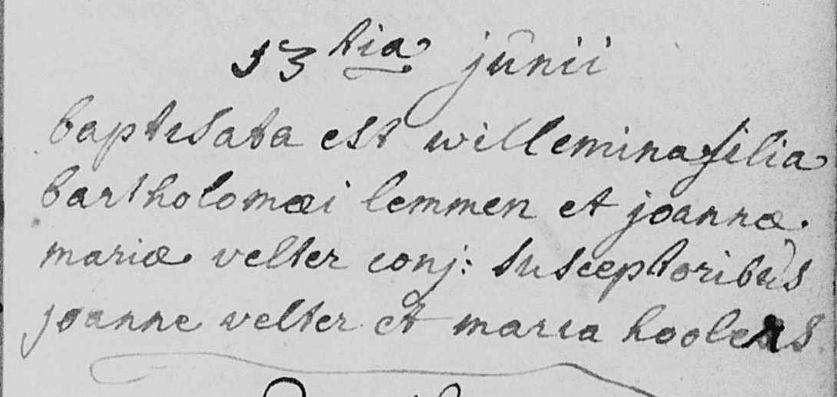 13tia junii
baptisata est willemina filia
bartholomæi lemmen et joannæ
mariæ velter conj: susceptoribus
joanne velter et maria hoolens